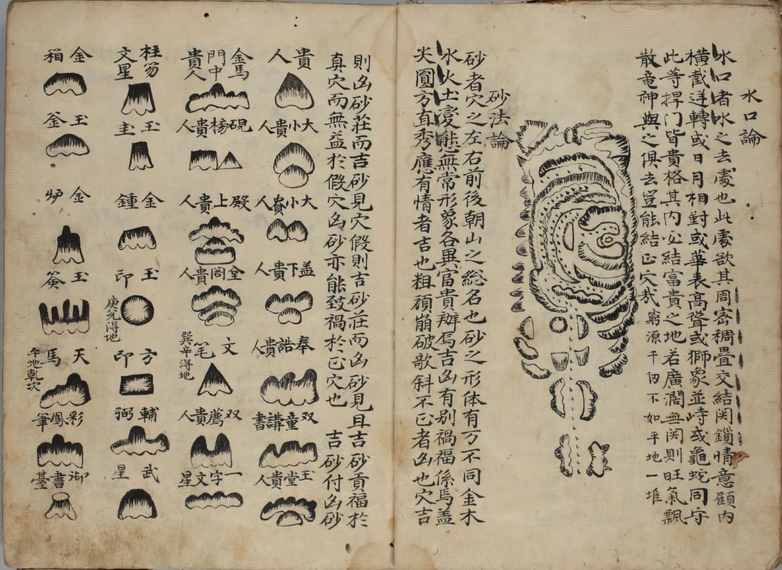 水口論
水口者水之去處也此處欲其周密稠疊交結関鎖情意顧內
橫截逆轉或日月相對或華表高聳或獅象並峙或龜蛇同守
此等捍門皆貴格其內必結富貴之地若廣濶無関則旺氣飄
散竜神與之俱去豈能結正穴哉 窮源千仞不如平地一堆
砂法論
砂者穴之左右前後朝山之総名也砂之形体有万不同金木
水火土變態無常形象各異富貴辨焉吉凶有別禍福係焉盖
尖圓方直秀應有情者吉也粗頑崩破欹斜不正者凶也穴吉
則凶砂莊而吉砂見穴假則吉砂莊而凶砂見且吉砂貢福於
真穴而無益於假穴凶砂亦能致禍於正穴也 吉砂付凶砂
貴人
大小貴人
大小貴人
盖下貴人
奉誥貴人
双童講書
玉堂貴人
金馬門中貴人
硯榜貴人
殿上貴人
金岡貴人
文笔
巽辛得地
双薦貴人
一字文星
柱笏文星
玉圭
金鍾
玉印
庚兌得地
方印
輔弼
武星
金箱
玉釜
金炉
玉
天馬
平地乾次
彩鳳筆
御書臺